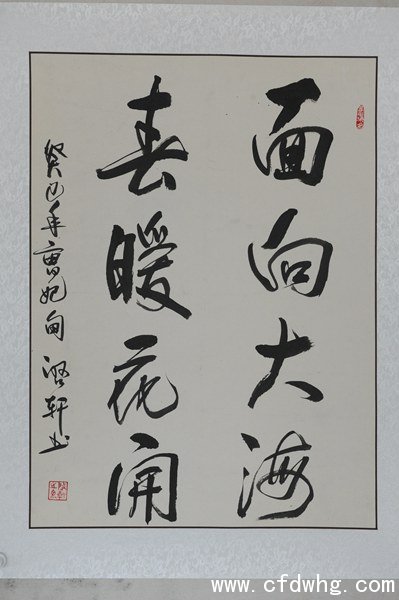 面向大海
春暖花开
癸巳年曹妃甸 啓轩书
www.cfdwhg.com